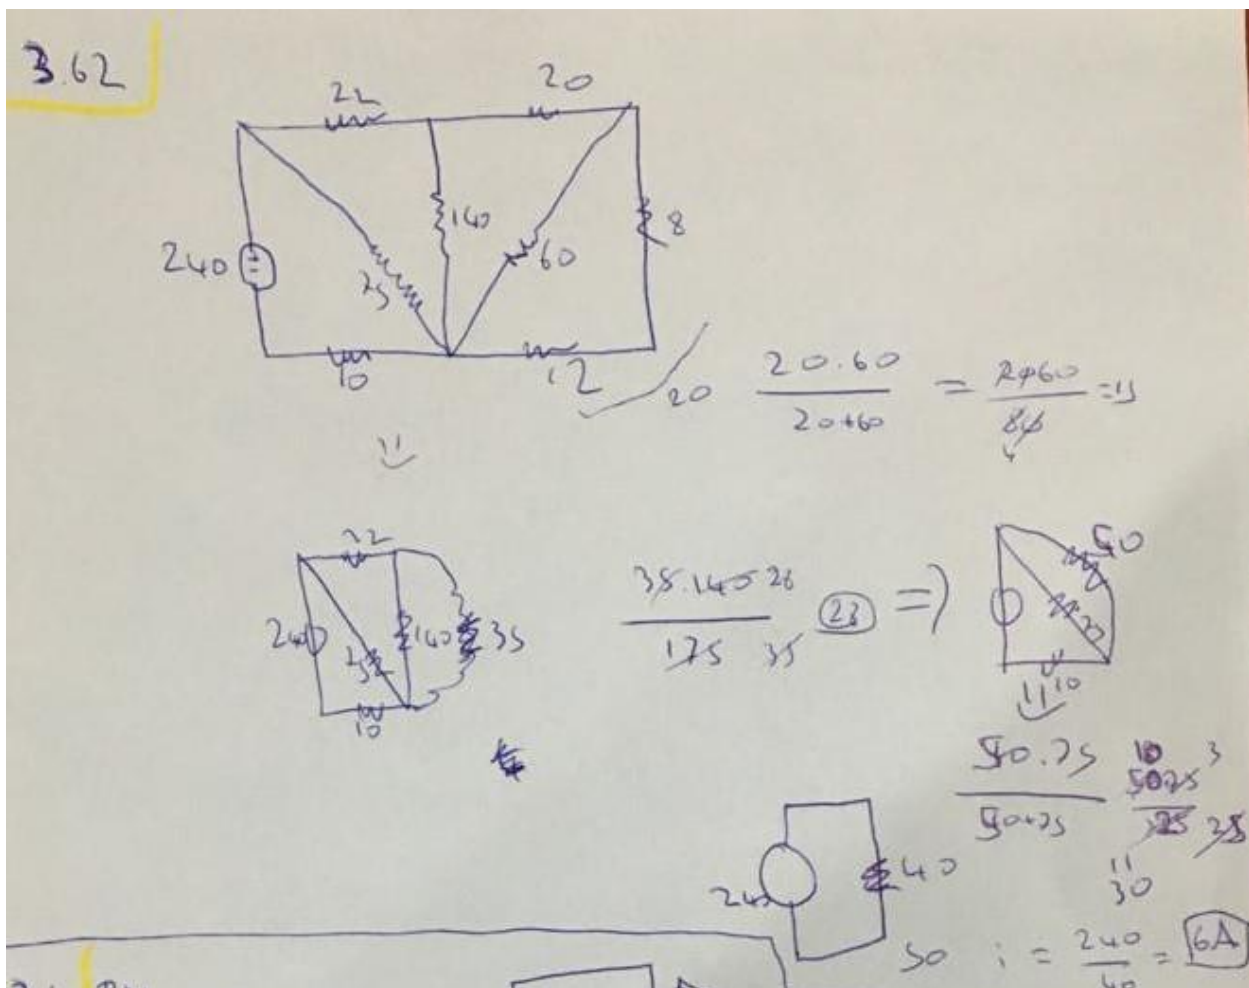 3.62
22
20
240
140
60
8
75
10
12
20
20.60
20+60
=
2060
80
4
=15
22
240
75
140
35
10
35.140 28
175 35
28
=>
50
75
10
50.75
50+75
10
50.75 3
125 25
30
240
40
so i = 240 = 6A
40